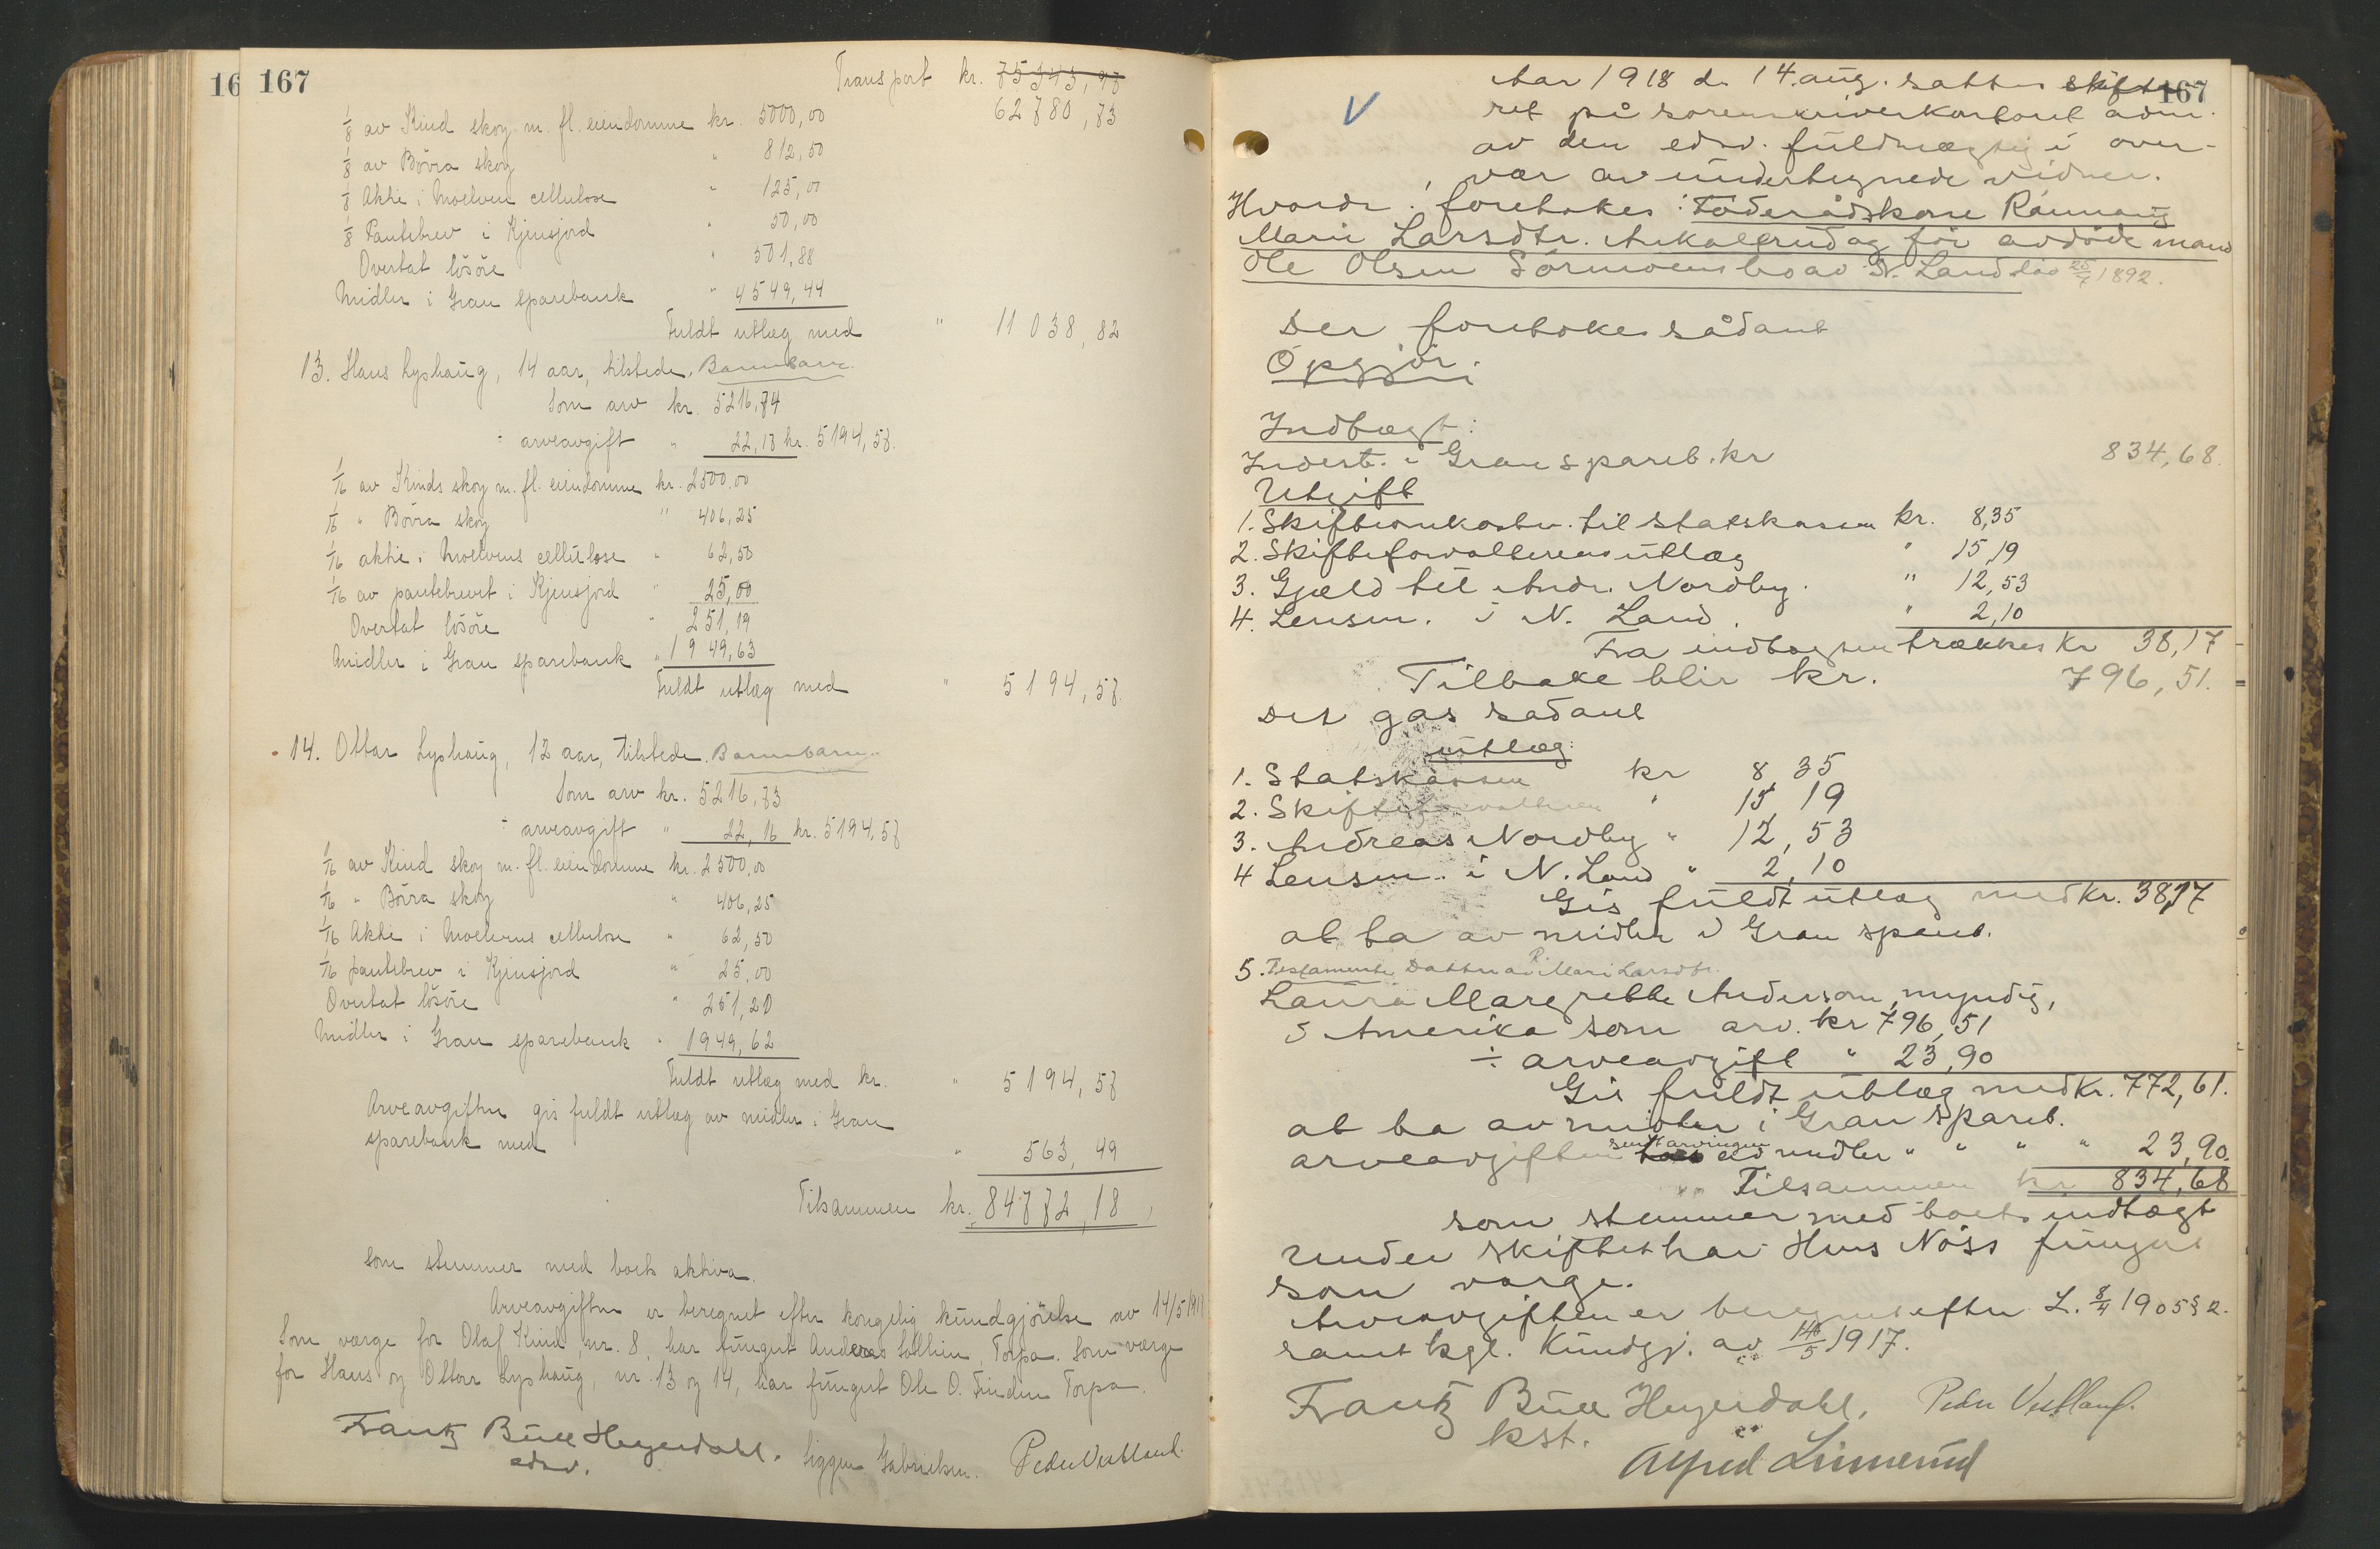 16 167
Transport kr. 75343,98
62780,73
1/8 av Kind skog m. fl. eiendomme kr. 5000,00
1/8 av Bövra skog " 812,50
1/8 Aktie i Moelven cellulose " 125,00
1/8 Pantebrev i Kjensjord " 50,00
Overtat lösöre " 501,88
Midler i Gran sparebank " 4549,44
Fuldt utlæg med " 11038,82
13. Hans Lyshaug, 14 aar, tilstede. Barnebarn.
Som arv kr. 5216,74
÷ arveavgift " 22,18 kr. 5194,57.
1/16 av Kinds skog m. fl. eiendomme kr. 2500,00
1/16 " Bövra skog " 406,25
1/16 aktie i Moelvens cellulose " 62,50
1/16 av pantebrevet i Kjensjord " 25,00
Overtat lösöre " 251,19
Midler i Gran sparebank " 1949,63
Fuldt utlæg med " 5194,57.
14. Ottar Lyshaug, 12 aar, tilstede. Barnebarn.
Som arv kr. 5216,73
÷ arveavgift " 22,16 kr. 5194,57
1/16 av Kind skog m. fl. eiendomme kr. 2500,00
1/16 " Bövra skog " 406,25
1/16 Aktie i Moelvens cellulose " 62,50
1/16 pantebrev i Kjensjord " 25,00
Overtat lösöre " 251,20
Midler i Gran sparebank " 1949,62
Fuldt utlæg med kr. " 5194,57
Arveavgiften gis fuldt utlæg av midler i Gran
sparebank med " 563,49
Tilsammen kr. 84772,18
som stemmer med boets aktiva.
Arveavgiften er beregnet efter kongelig kundgjörelse av 14/5 1917
Som værge for Olaf Kind, nr. 8, har fungert Andreas Sollien, Torpa. Som værge
for Hans og Ottar Lyshaug, nr. 13 og 14, har fungert Ole O. Finden Torpa.
Frantz Bull Heyerdahl. Sigguu Gabrielsen. Peder Vestland.
edsv.
167
V
Aar 1918 d. 14. aug. sattes skifte-
ret på sorenskriverkontoret adm.
av den edsv. fuldmægtig i over-
vær av undertegnede vidner.
Hvorda foretokes: Föderådskone Rannaug
Marie Larsdtr. Ankallsrud og för avdöde mand
Ole Olsen Sörmoens bo av N. Land död 25/7 1892.
Der foretokes sådant
Opgjör.
Indtægt:
Indest. i Gran spareb. kr 834,68.
Utgift
1. Skifteomkostn. til statskassen kr. 8,35
2. Skifteforvalterens utlæg " 15,19
3. Gjæld til Andr. Nordby. " 12,53
4. Lensm. i N. Land. " 2,10
Fra indtægten trækkes kr 38,17
Tilbake blir kr. 796,51.
Det gås sådant
utlæg:
1. Statskassen kr 8,35
2. Skifteforvalteren " 15,19
3. Andreas Nordby " 12,53
4 Lensm. i N. Land " 2,10
Gis fuldt utlæg med kr. 38,17
at ta av midler i Gran spareb.
5. Testamente Datter av R. Mari Larsdtr.
Laura Margrethe Anderson, myndig,
i Amerika som arv. kr 796,51
÷ arveavgift " 23,90
Gis fuldt utlæg med kr. 772,61.
at ta av midler i Gran spareb.
arveavgiften sendt arvingen av midler " " " " 23,90.
Tilsammen kr 834,68
som stemmer med boets indtægt
Under skiftet har Hans Nöss fungert
som værge.
Arveavgiften er beregnet efter L. 8/4 1905 § 2.
samt kgl. Kundgj. av 14/5 1917.
Frantz Bull Heyerdahl, Peder Vestland.
kst.
Alfred Linnerud